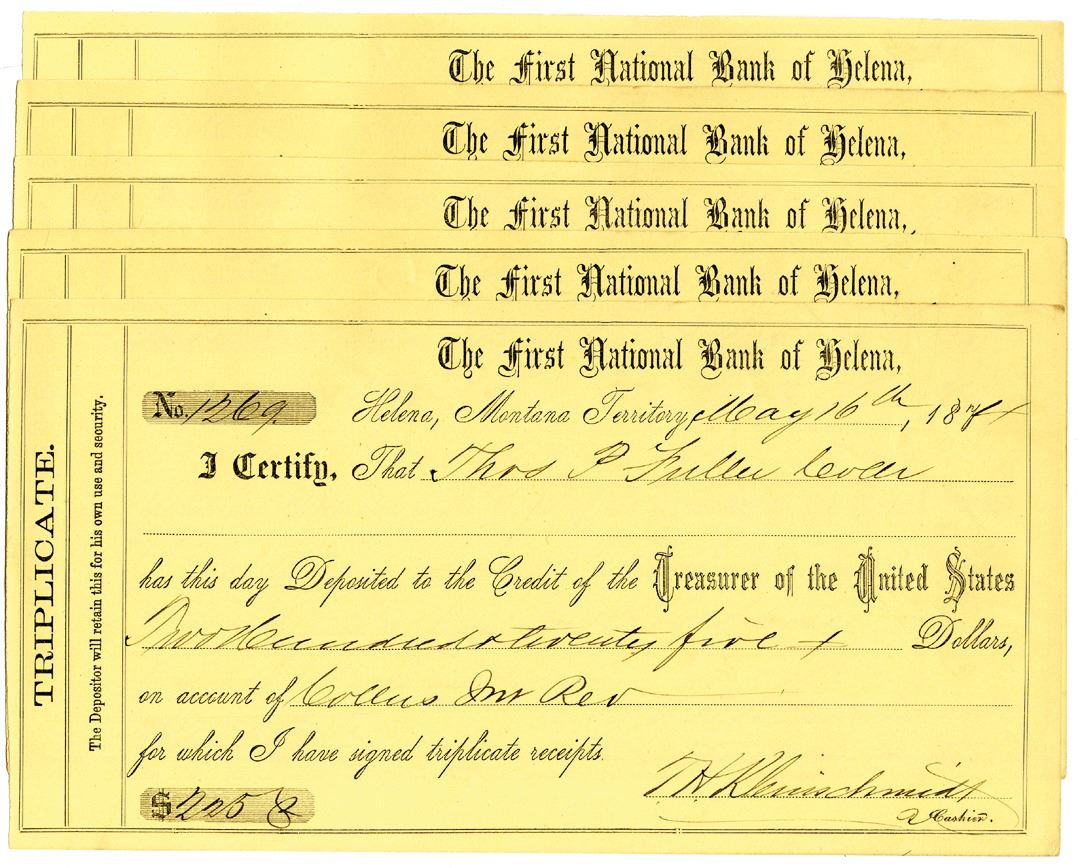 The First National Bank of Helena,
The First National Bank of Helena,
The First National Bank of Helena,
The First National Bank of Helena,
The First National Bank of Helena,
No. 1269. Helena, Montana Territory, May 16th, 1874
I Certify, That Thos P Fuller Coller
has this day Deposited to the Credit of the Treasurer of the United States
Two Hundred & twenty five Dollars,
on account of Collns Int Rev
for which I have signed triplicate receipts.
T H Kleinschmidt
$ 225
Cashier.
TRIPLICATE.
The Depositor will retain this for his own use and security.